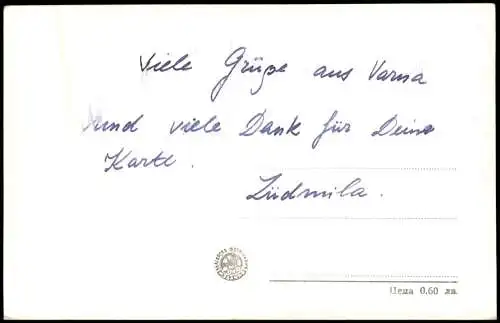 Viele Grüße aus Varna
und viele Dank für Deine
Karte.
Lüdmila.
Цена 0.60 лв.